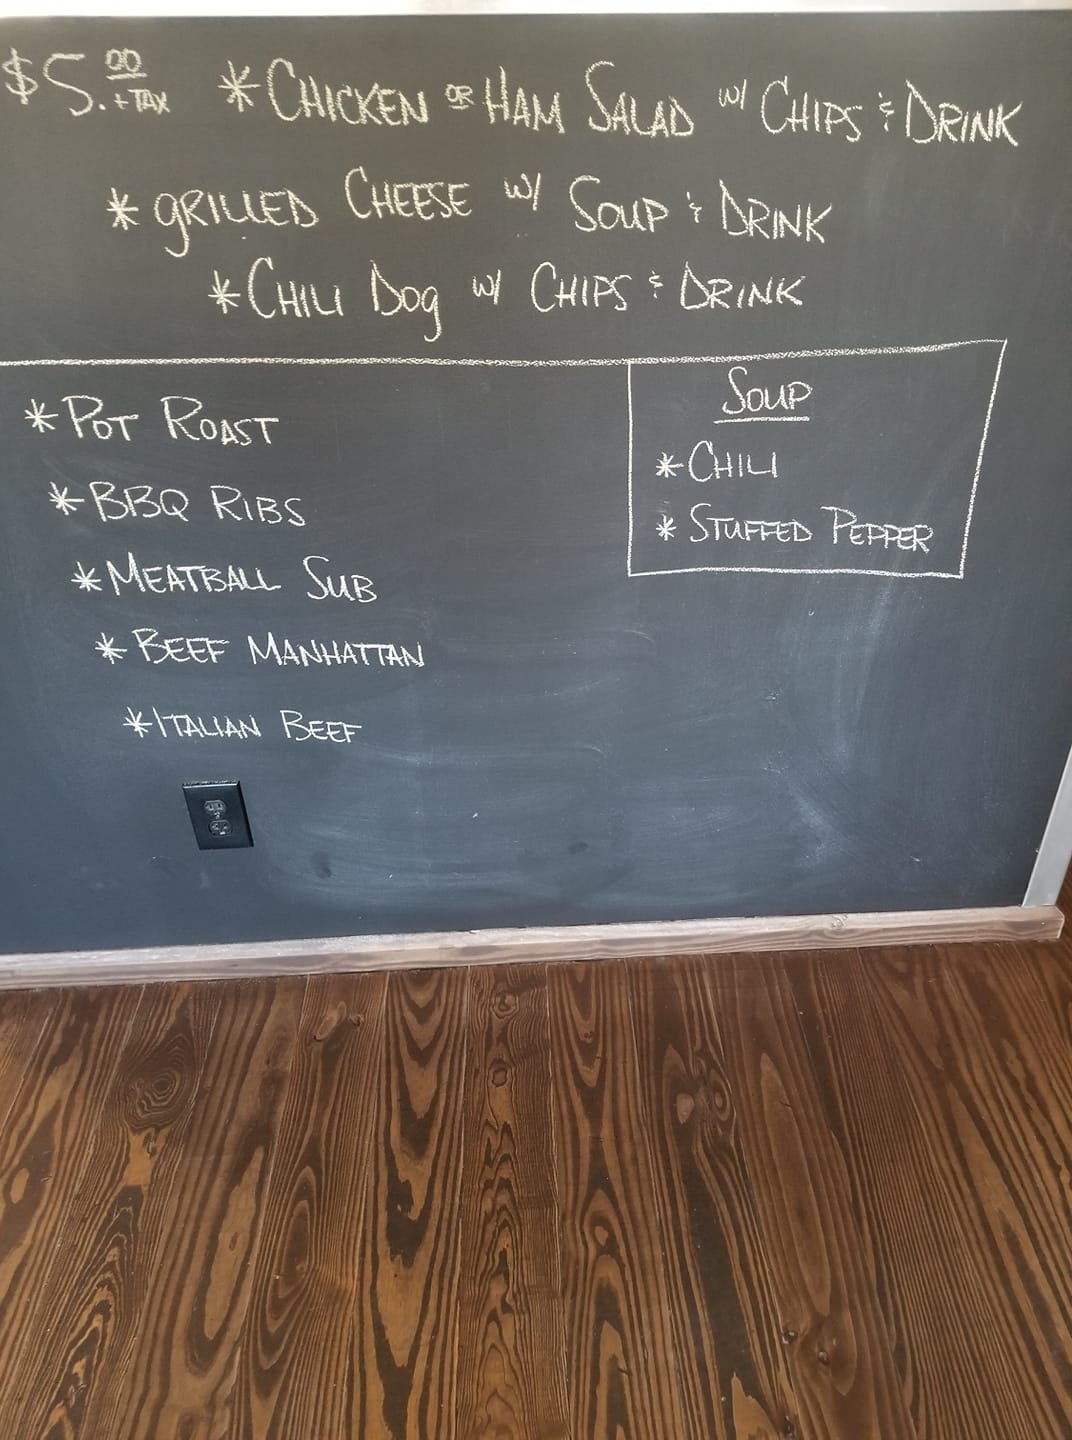 $5.00 + TAX * CHICKEN OR HAM SALAD w/ CHIPS & DRINK
* GRILLED CHEESE w/ SOUP & DRINK
* CHILI DOG w/ CHIPS & DRINK
* POT ROAST
* BBQ RIBS
* MEATBALL SUB
* BEEF MANHATTAN
* ITALIAN BEEF
SOUP
* CHILI
* STUFFED PEPPER